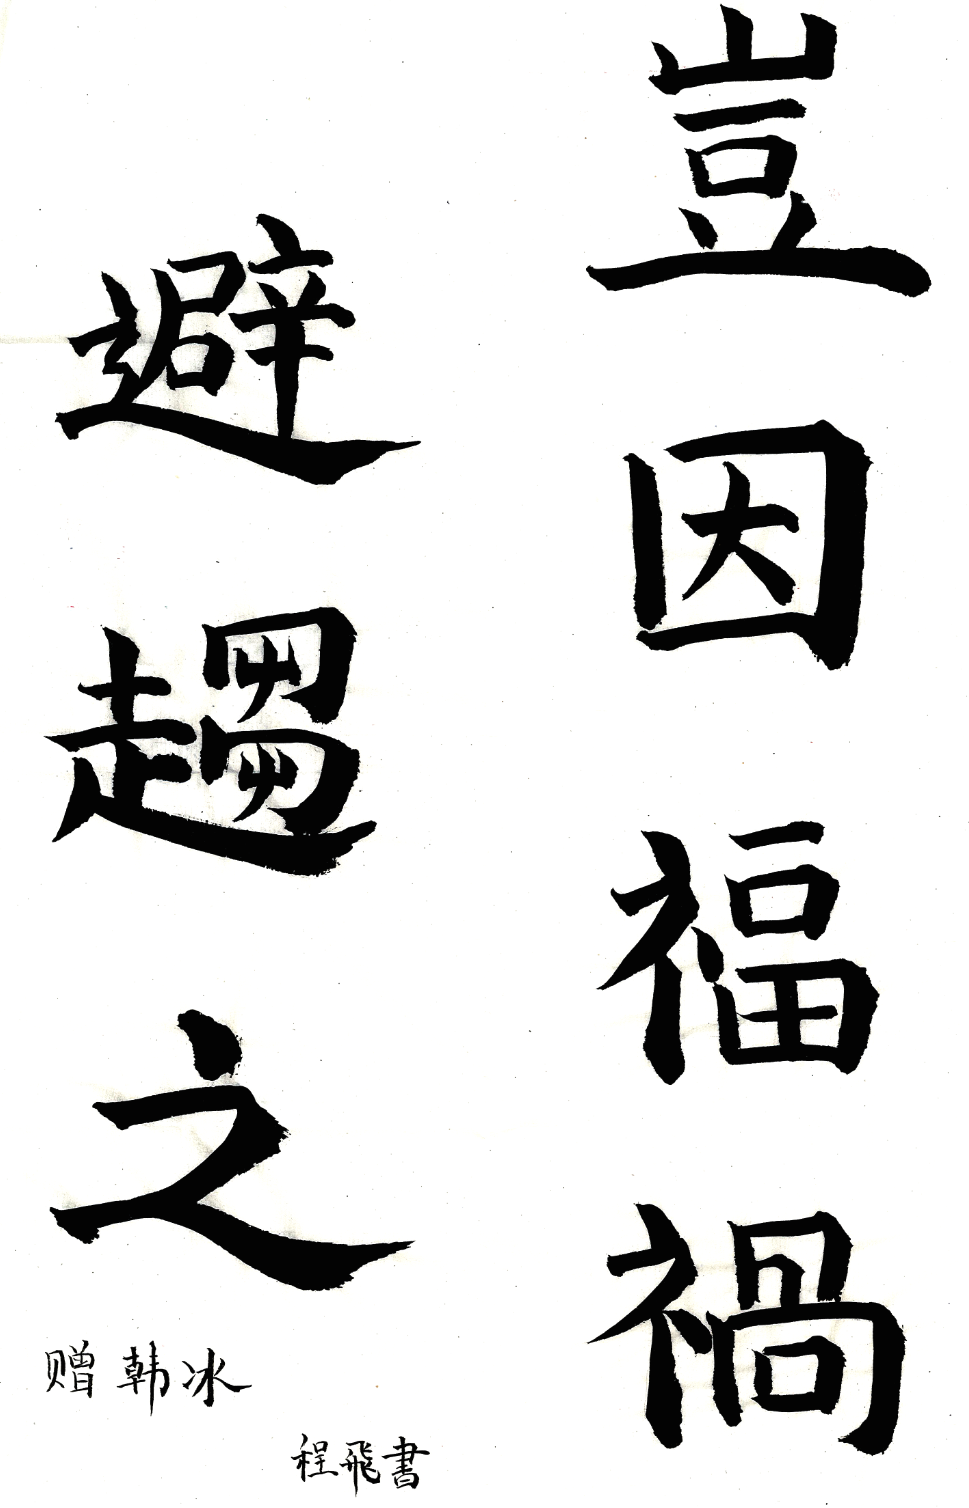 豈因福禍
避趨之
赠韩冰
程飛書